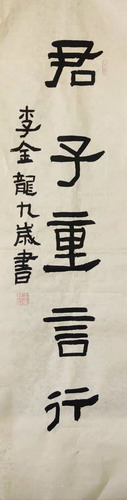 君子重言行
李金龍九歲書